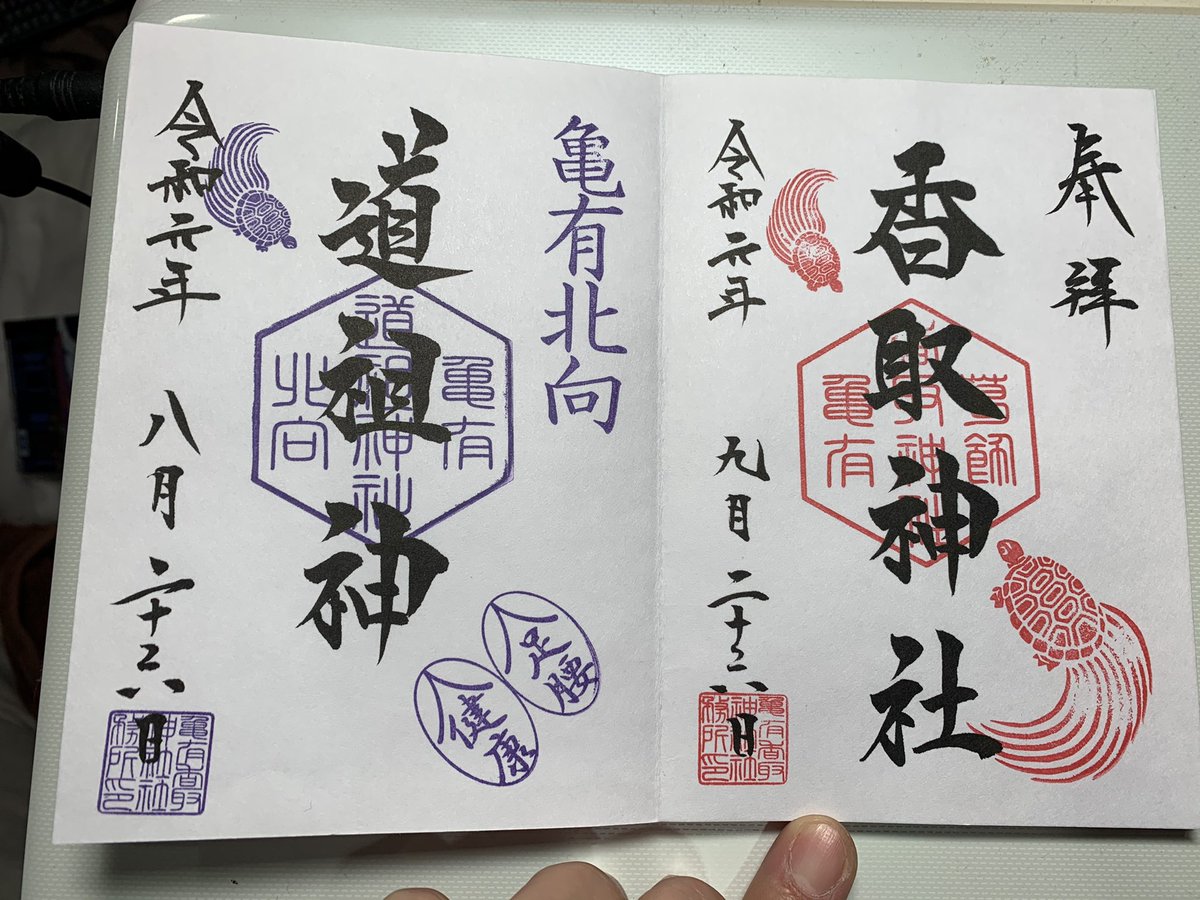 奉拝
香取神社
葛飾
香取神社
亀有
令和元年 九月二十六日
亀有香取
神社社
務所印
亀有北向
道祖神
亀有
道祖神社
北向
足腰
健康
令和元年 八月二十六日
亀有香取
神社社
務所印